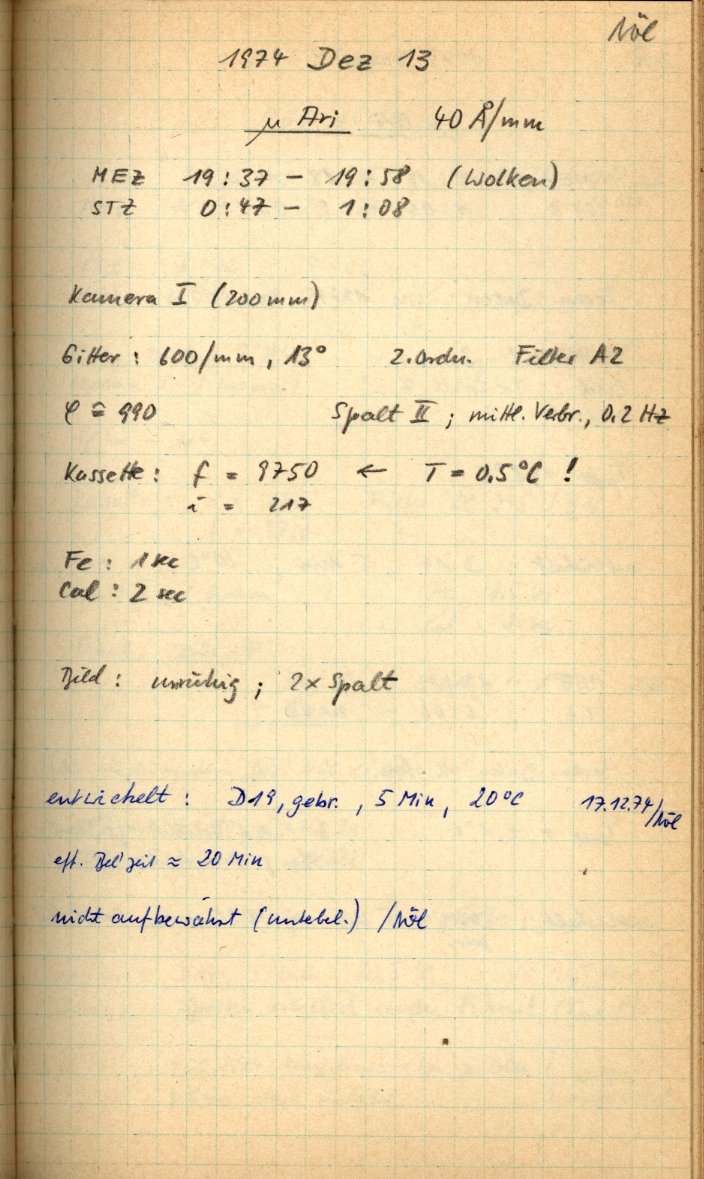 Nöl
1974 Dez 13
μ Ari 40 Å/mm
MEZ 19:37 – 19:58 (Wolken)
STZ 0:47 – 1:08
Kamera I (200mm)
Gitter : 600/mm, 13° 2. Ordn. Filter A2
φ ≙ 990 Spalt II ; mittl. Verbr., 0.2 Hz
Kassette : f = 9750 ← T = 0.5°C !
i = 217
Fe : 1 sec
Cal : 2 sec
Bild : unruhig ; 2x Spalt
entwickelt : D19, gebr. , 5 Min, 20°C 17.12.74/Nöl
eff. Bel'zeit ≈ 20 Min
nicht aufbewahrt (unterbel.) /Nöl